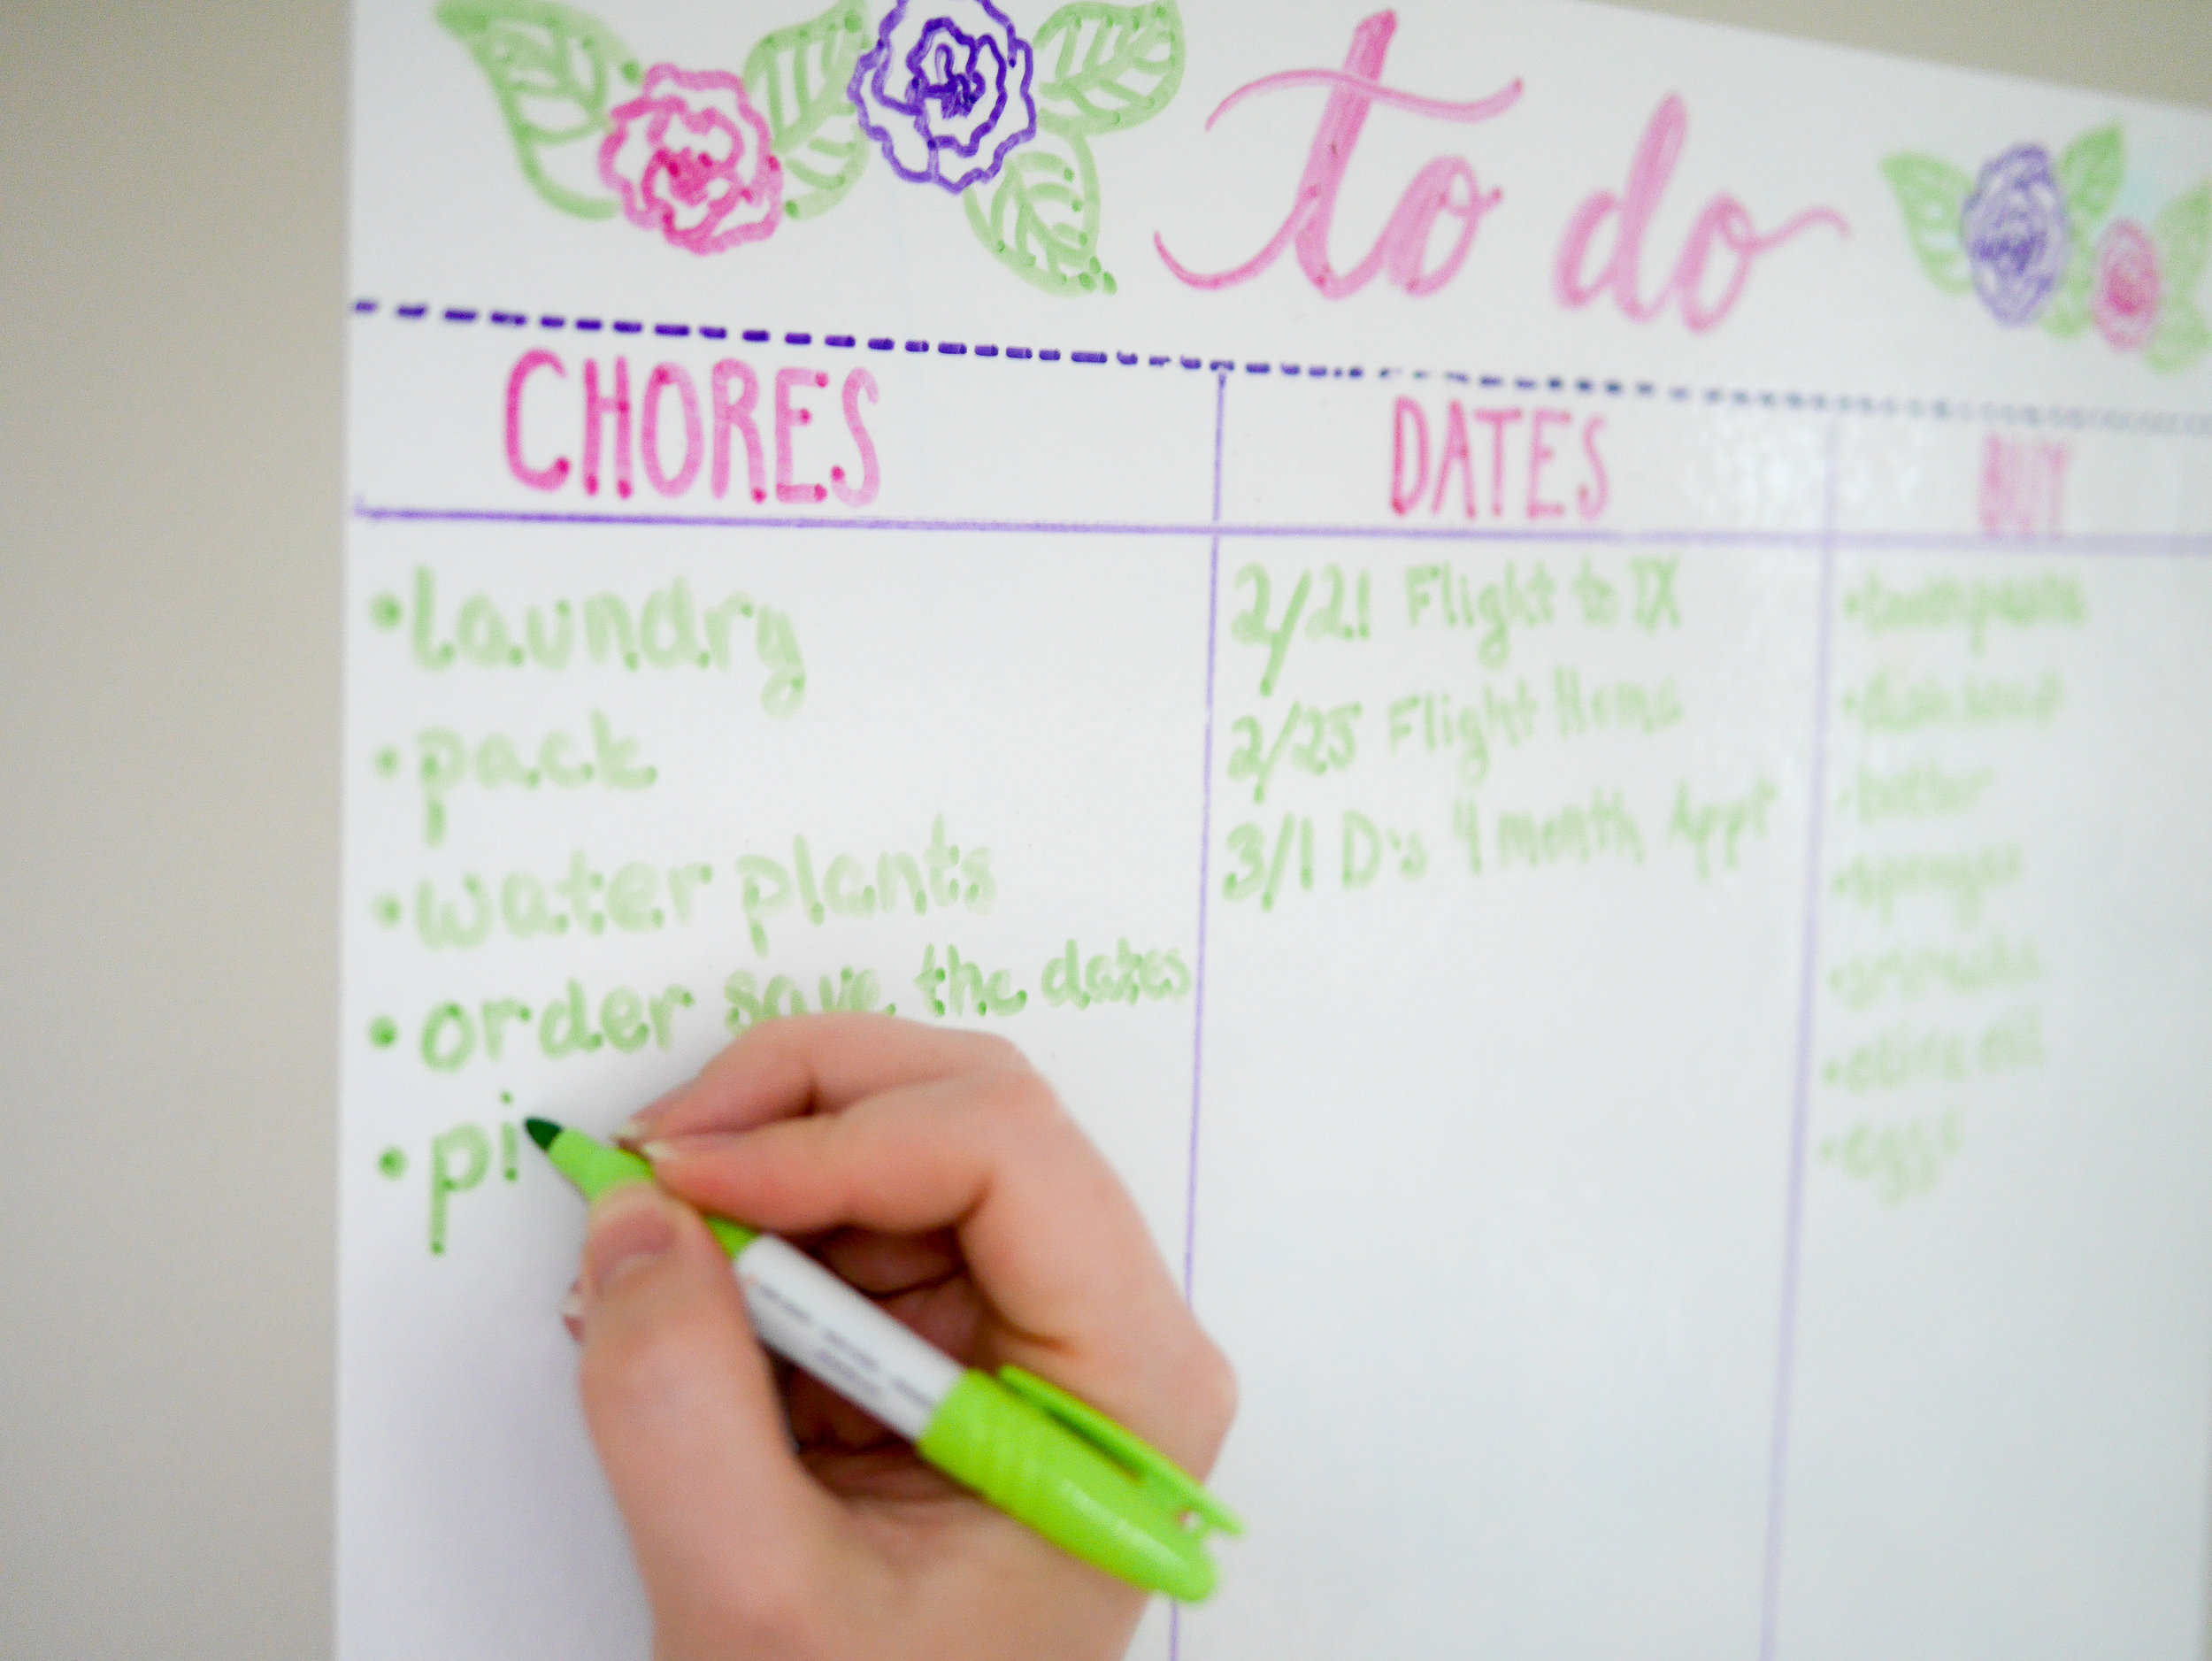 to do
CHORES
DATES
BUY
• laundry
• pack
• water plants
• order save the dates
• pi
2/21 Flight to TX
2/25 Flight Home
3/1 D's 4 month Appt
• toothpaste
• dish soap
• butter
• sponges
• olive oil
• eggs